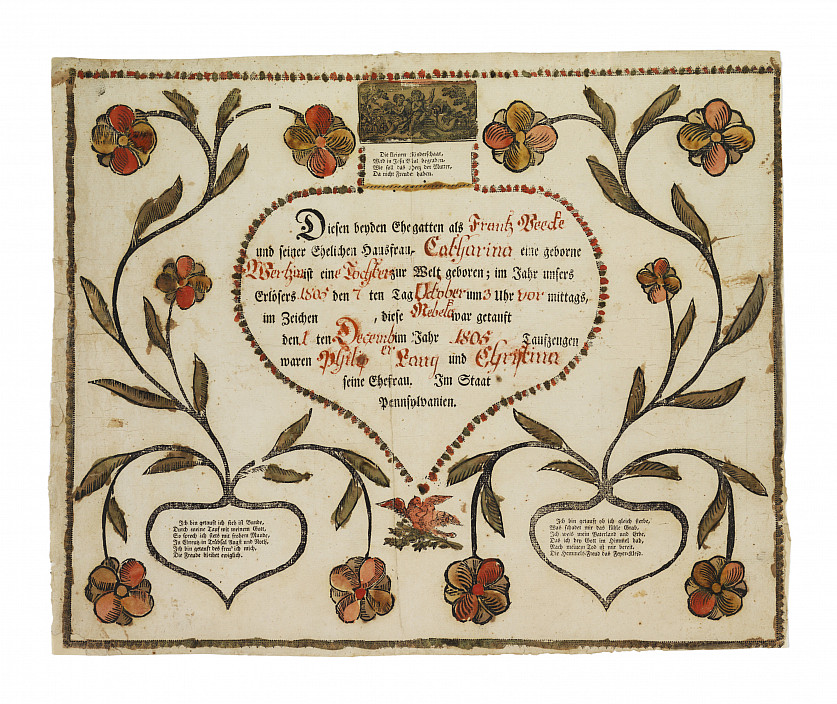 Die kleinen Kinderschaar,
Wird in Jesu Blut begraben.
Wie soll das Herz der Mutter,
Da nicht Freude haben.
Diesen beyden Ehegatten als Frantz Beecke
und seiner Ehelichen Hausfrau, Catharina eine geborne
Wertzin ist eine Tochter zur Welt geboren; im Jahr unsers
Erlösers 1805 den 7 ten Tag October um 3 Uhr vor mittags,
im Zeichen , diese Rebeka war getauft
den 1 ten December im Jahr 1805 Taufzeugen
waren Philip Lang und Christina
seine Ehefrau. Im Staat
Pennsylvanien.
Ich bin getauft ich steh im Bunde,
Durch meine Tauf mit meinem Gott,
So sprech ich stets mit frohem Munde,
In Creuz in Trübsal Angst und Noth,
Ich bin getauft des freu' ich mich,
Die Freude bleibet ewiglich.
Ich bin getauft ob ich gleich sterbe,
Was schadet mir das kühle Grab,
Ich weiß mein Vaterland und Erbe,
Das ich bey Gott im Himmel hab,
Nach meinem Tod ist mir bereit,
Die Himmels-Freud das Feyer-Kleid.